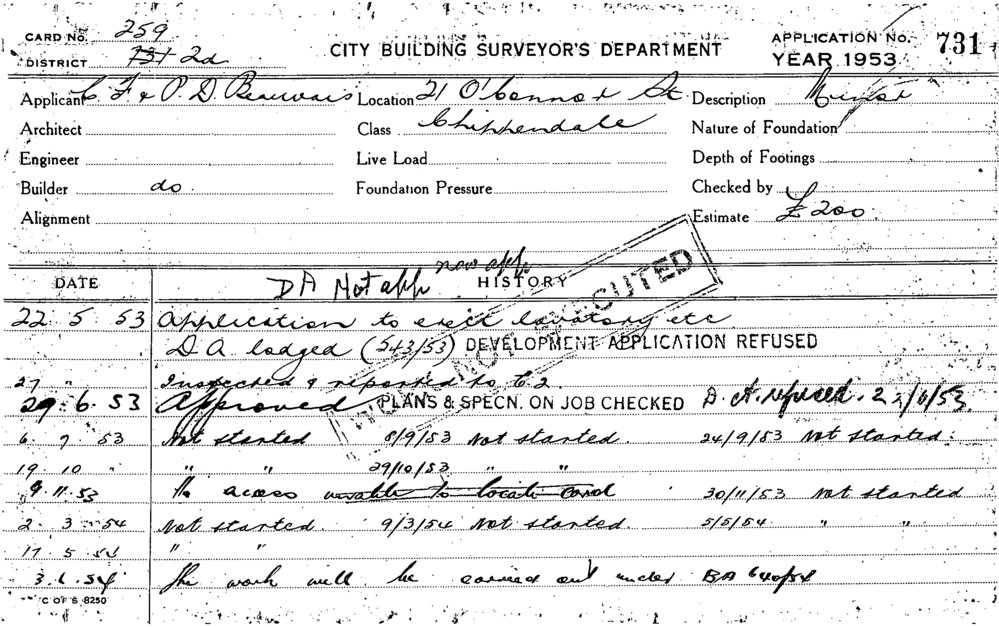 CARD No. 259
CITY BUILDING SURVEYOR'S DEPARTMENT
APPLICATION No. 731
DISTRICT 1st 2d
YEAR 1953
Applicant C F & P. D. Beauvais Location 21 O'Connor St Description Minor
Architect Class Chippendale Nature of Foundation
Engineer Live Load Depth of Footings
Builder do Foundation Pressure Checked by
Alignment Estimate £200
DATE HISTORY
DA Not app now app.
22 5 53 Application to erect lavatory etc
D A lodged (543/53) DEVELOPMENT APPLICATION REFUSED
27 " Inspected & reported to C.2.
29. 6. 53 Approved PLANS & SPECN. ON JOB CHECKED D. A. refused
6. 7. 53 Not started 8/9/53 Not started 24/9/53 Not started
19. 10 " " " 29/10/53 " "
9. 11. 53 No access unable to locate 30/11/53 Not started
2 3 54 Not started 9/3/54 Not started 5/5/54 " "
17. 5 54 " "
3. 6. 54 The work will be carried out under BA 640/54
NOT EXECUTED
C OF S 8250